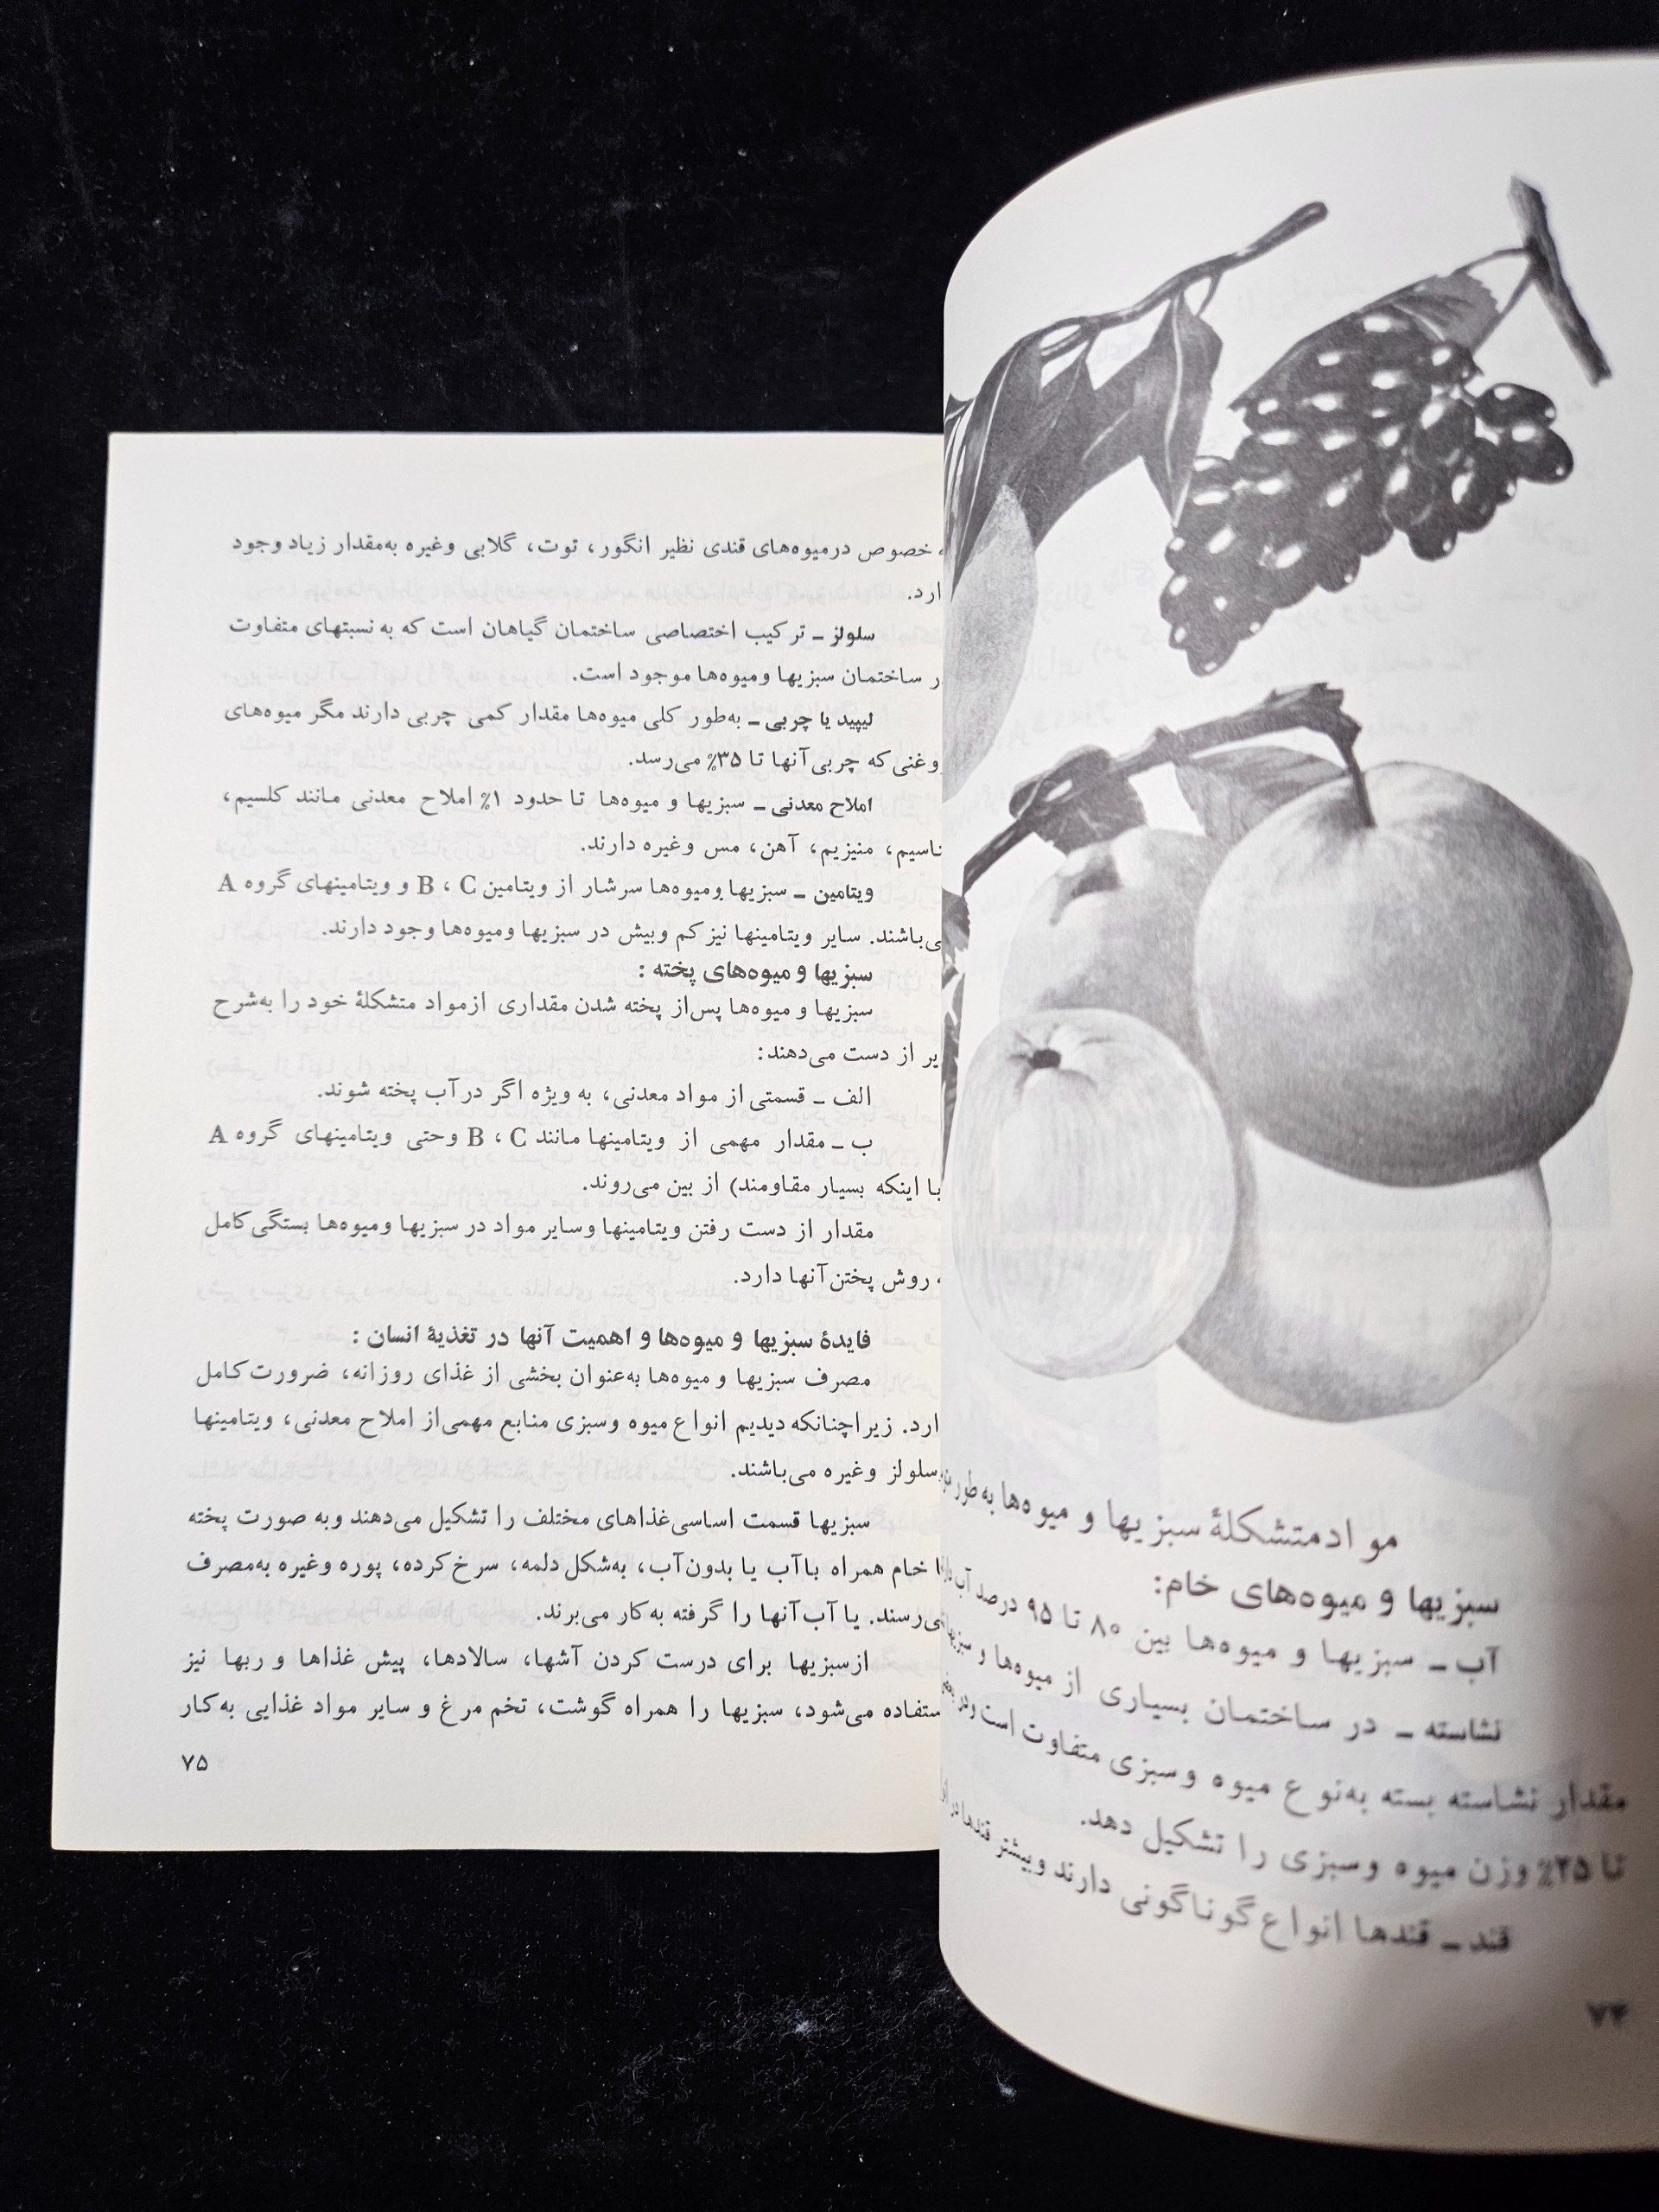 مواد متشکلهٔ سبزیها و میوه‌ها به‌طور
سبزیها و میوه‌های خام:
آب ـ سبزیها و میوه‌ها بین ۸۰ تا ۹۵ درصد آب
نشاسته ـ در ساختمان بسیاری از میوه‌ها و
مقدار نشاسته بسته به‌نوع میوه وسبزی متفاوت است
تا ۲۵٪ وزن میوه وسبزی را تشکیل دهد.
قند ـ قندها انواع گوناگونی دارند وبیشتر قندها در
۷۴
خصوص درمیوه‌های قندی نظیر انگور، توت، گلابی وغیره به‌مقدار زیاد وجود
ارد.
سلولز ـ ترکیب اختصاصی ساختمان گیاهان است که به نسبتهای متفاوت
ر ساختمان سبزیها ومیوه‌ها موجود است.
لیپید یا چربی ـ به‌طور کلی میوه‌ها مقدار کمی چربی دارند مگر میوه‌های
وغنی که چربی آنها تا ۳۵٪ می‌رسد.
املاح معدنی ـ سبزیها و میوه‌ها تا حدود ۱٪ املاح معدنی مانند کلسیم،
تاسیم، منیزیم، آهن، مس وغیره دارند.
ویتامین ـ سبزیها ومیوه‌ها سرشار از ویتامین B ، C و ویتامینهای گروه A
ی‌باشند. سایر ویتامینها نیز کم وبیش در سبزیها ومیوه‌ها وجود دارند.
سبزیها و میوه‌های پخته :
سبزیها و میوه‌ها پس‌از پخته شدن مقداری ازمواد متشکلهٔ خود را به‌شرح
یر از دست می‌دهند:
الف ـ قسمتی از مواد معدنی، به ویژه اگر در آب پخته شوند.
ب ـ مقدار مهمی از ویتامینها مانند B ، C وحتی ویتامینهای گروه A
با اینکه بسیار مقاومند) از بین می‌روند.
مقدار از دست رفتن ویتامینها وسایر مواد در سبزیها ومیوه‌ها بستگی کامل
، روش پختن آنها دارد.
فایدهٔ سبزیها و میوه‌ها و اهمیت آنها در تغذیهٔ انسان :
مصرف سبزیها و میوه‌ها به‌عنوان بخشی از غذای روزانه، ضرورت کامل
ارد. زیراچنانکه دیدیم انواع میوه وسبزی منابع مهمی‌از املاح معدنی، ویتامینها
سلولز وغیره می‌باشند.
سبزیها قسمت اساسی غذاهای مختلف را تشکیل می‌دهند وبه صورت پخته
ا خام همراه با آب یا بدون آب، به‌شکل دلمه، سرخ کرده، پوره وغیره به‌مصرف
ی‌رسند. یا آب آنها را گرفته به کار می‌برند.
ازسبزیها برای درست کردن آشها، سالادها، پیش غذاها و ربها نیز
ستفاده می‌شود، سبزیها را همراه گوشت، تخم مرغ و سایر مواد غذایی به کار
۷۵